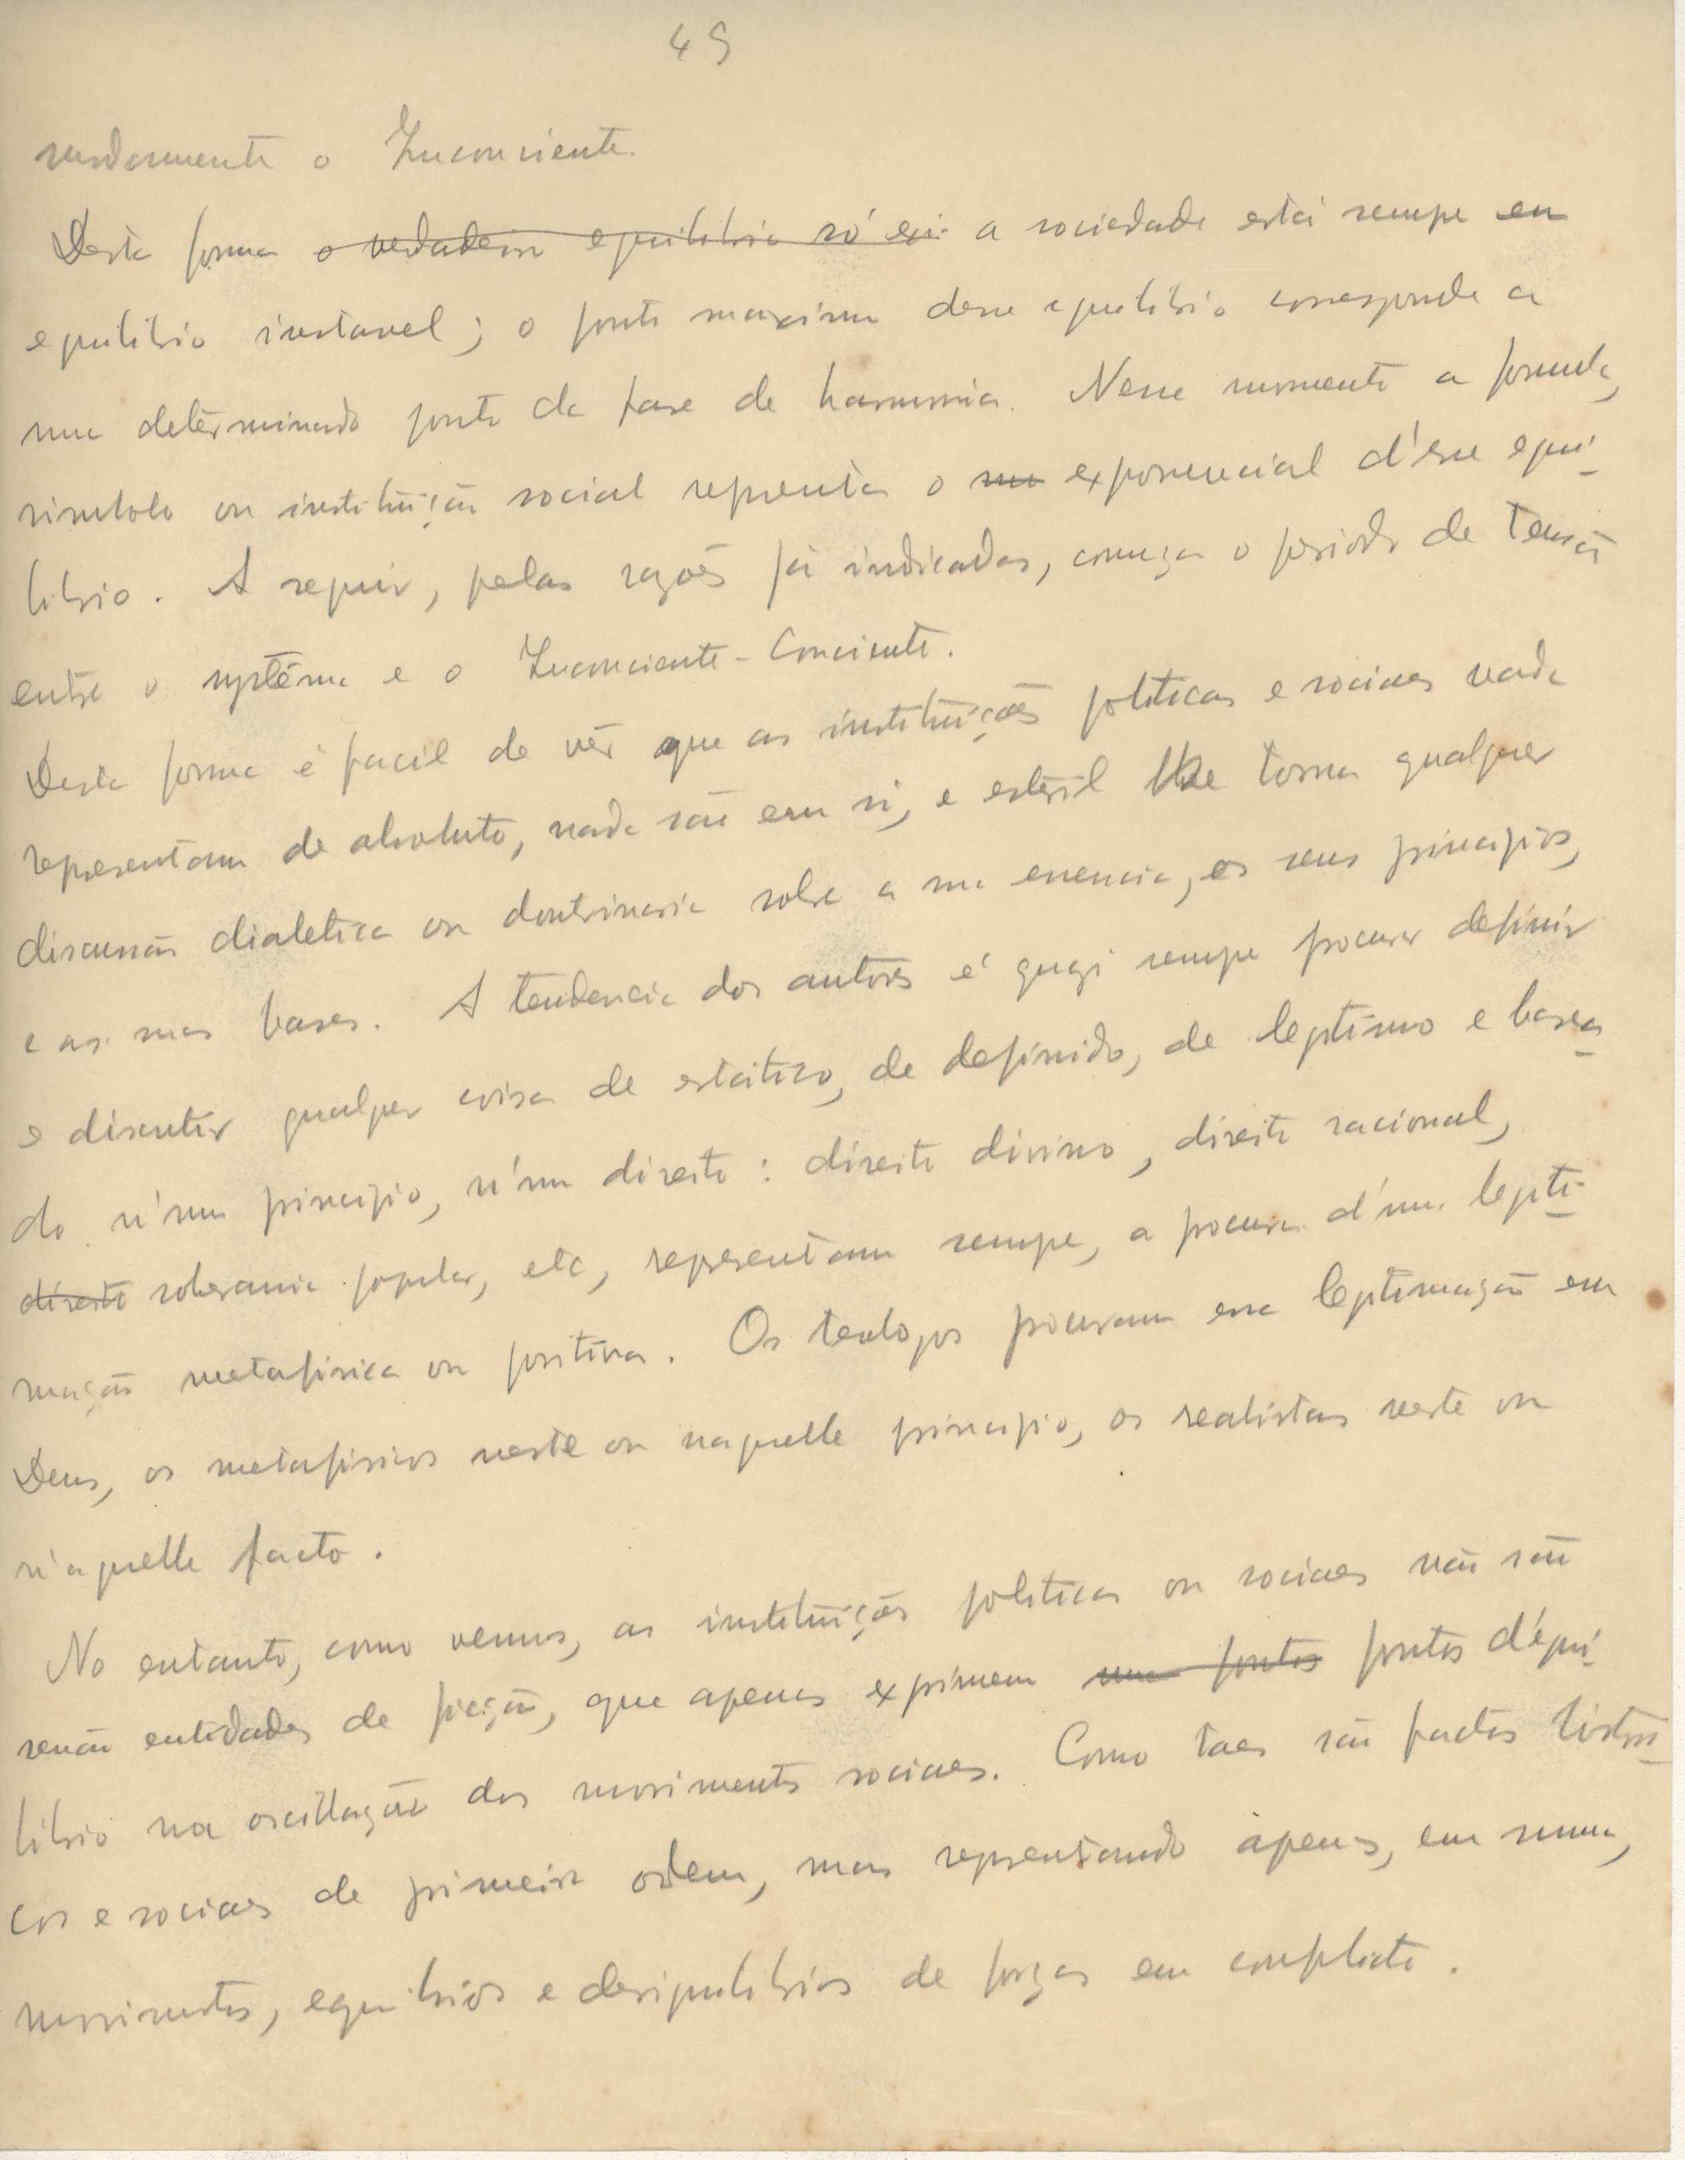 49
o Inconciente.
Desta forma o verdadeiro equilibrio só exi- a sociedade está sempre em
equilibrio instavel; o ponto maximo desse equilibrio corresponde a
um determinado ponto da fase de harmonia. Nesse momento a formula,
simbolo ou instituição social representa o seu exponencial d'esse equi-
librio. A seguir, pelas razões já indicadas, começa o periodo de tensão
entre o systema e o Inconciente-Conciente.
Desta forma é facil de vêr que as instituições politicas e sociaes nada
representam de absoluto, nada são em si, e esteril se torna qualquer
discussão dialetica ou doutrinaria sobre a sua essencia, os seus principios,
e as suas bases. A tendencia dos autores é quasi sempre procurar definir
e discutir qualquer coisa de estatico, de definido, de legitimo e basea-
do n'um principio, n'um direito: direito divino, direito racional,
direito soberania popular, etc, representam sempre, a procura d'uma legiti-
mação metafisica ou positiva. Os teologos procuram essa legitimação em
Deus, os metafisicos neste ou naquelle principio, os realistas neste ou
n'aquelle facto.
No entanto, como vemos, as instituições politicas ou sociaes não são
senão entidades de ficção, que apenas exprimem uns pontos pontos d'equi-
librio na oscillação dos movimentos sociaes. Como taes são factos histori-
cos e sociaes de primeira ordem, mas representando apenas, em suma,
movimentos, equilibrios e desiquilibrios de forças em conflicto.